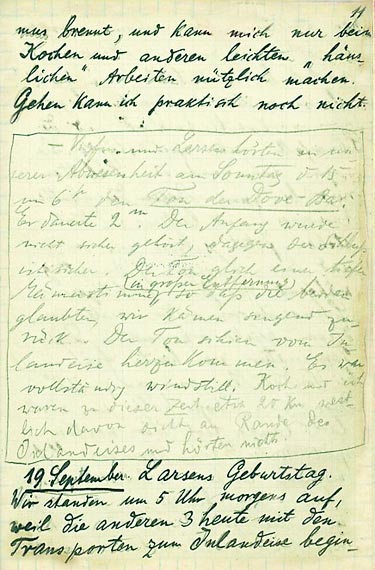 11
mus brennt, und kann mich nur beim
Kochen und anderen leichten „häus-
lichen" Arbeiten nützlich machen.
Gehen kann ich praktisch noch nicht.
– Vigfus und Larsen hörten in un
serer Abwesenheit am Sonntag d. 15
um 6h den Ton der Dove-Bai.
Er dauerte 2m. Der Anfang wurde
nicht sicher gehört, dagegen der Schluss
sicher. Der Ton glich einer tiefen
(in großer Entfernung)
Männerstimme so daß die beiden
glaubten, wir kämen singend zu-
rück. Der Ton schien vom In
landeise herzukommen. Es war
vollständig windstill. Koch und ich
waren zu dieser Zeit etwa 20 km west-
lich davon dicht am Rande des
Inlandeises und hörten nichts.
19. September. Larsens Geburtstag.
Wir standen um 5 Uhr morgens auf,
weil die anderen 3 heute mit den
Transporten zum Inlandeise begin-